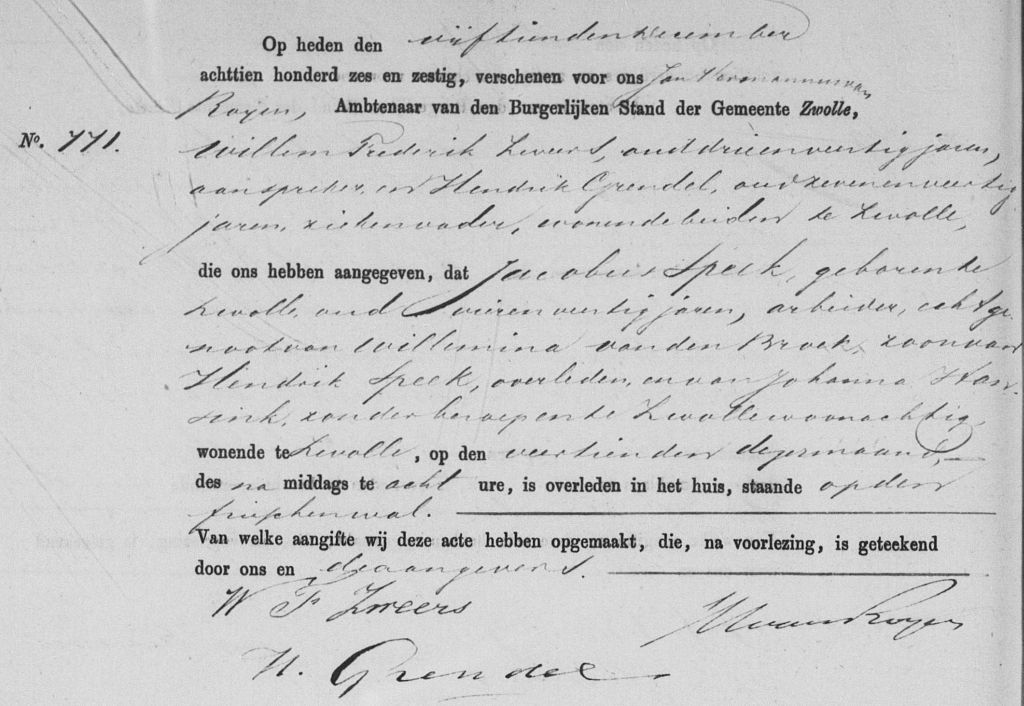 Op heden den vijftienden december
achttien honderd zes en zestig, verschenen voor ons Jan Hermannus van
Roijen, Ambtenaar van den Burgerlijken Stand der Gemeente Zwolle,
No. 771.
Willem Frederik Zweers, oud drieenveertig jaren,
aanspreker, en Hendrik Grendel, oud zevenenveertig
jaren, ziekenvader, wonende beiden te Zwolle,
die ons hebben aangegeven, dat Jacobus Speek, geboren te
Zwolle, oud vierenveertig jaren, arbeider, echtge-
noot van Willemina van den Broek, zoon van
Hendrik Speek, overleden, en van Johanna
sink, zonder beroep en te Zwolle woonachtig,
wonende te Zwolle, op den veertienden dezer maand,
des na middags te acht ure, is overleden in het huis, staande op den
frieschenwal.
Van welke aangifte wij deze acte hebben opgemaakt, die, na voorlezing, is geteekend
door ons en de aangevers.
W F Zweers
JHvanRoyen
H. Grendel